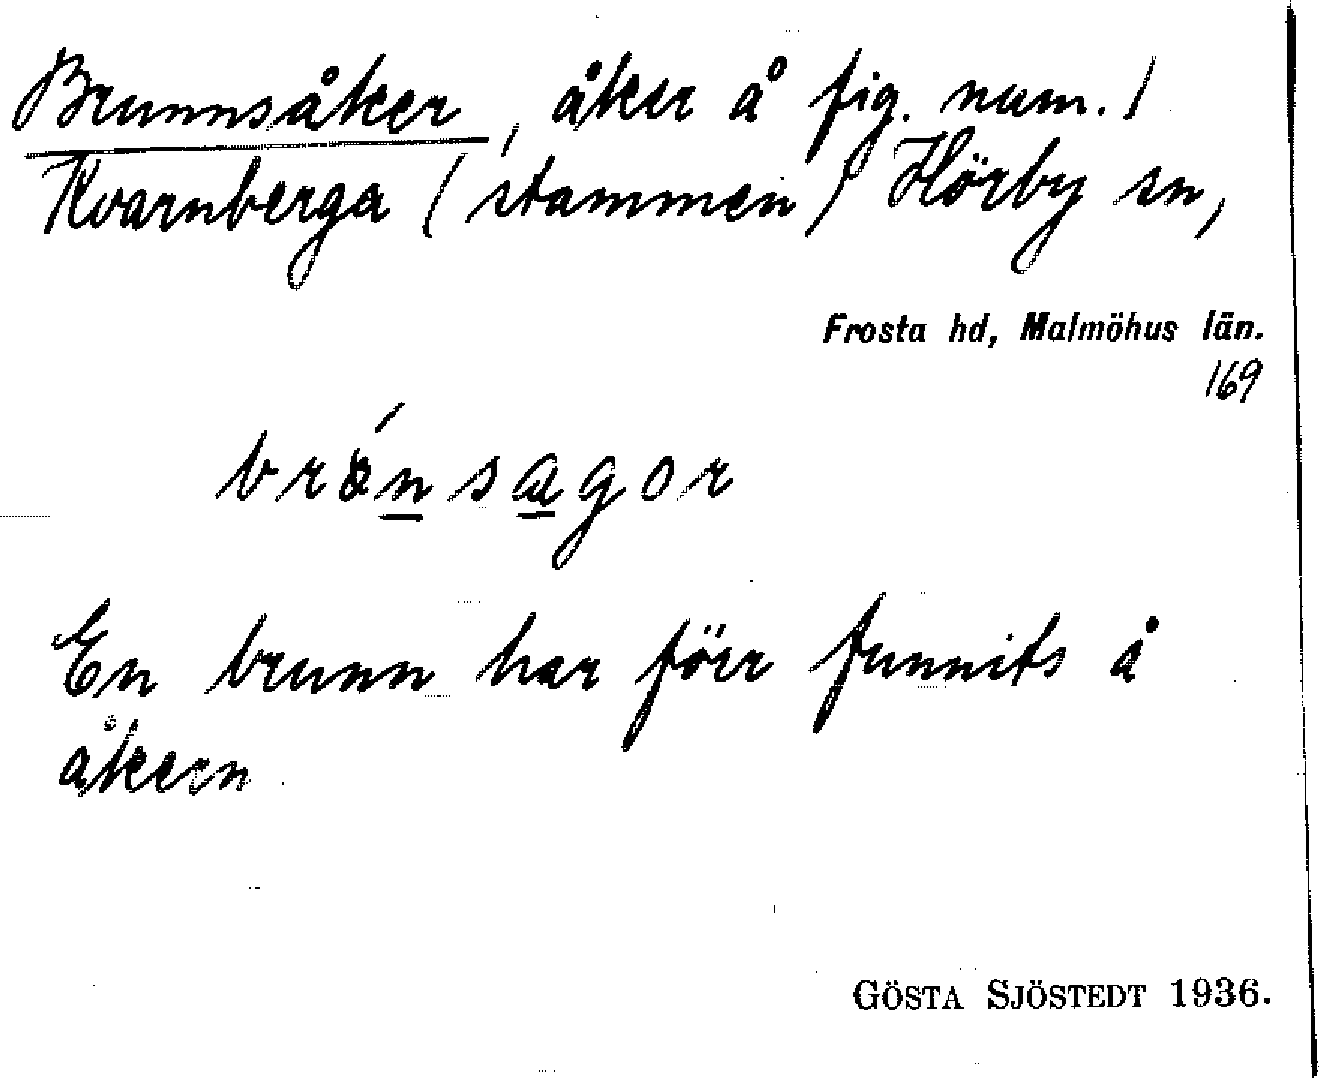 Brunnsåker, åker å fig. num. 1
Kvarnberga (stammen) Hörby sn,
Frosta hd, Malmöhus län.
169
brånsagor
En brunn har förr funnits å
åkern
GÖSTA SJÖSTEDT 1936.